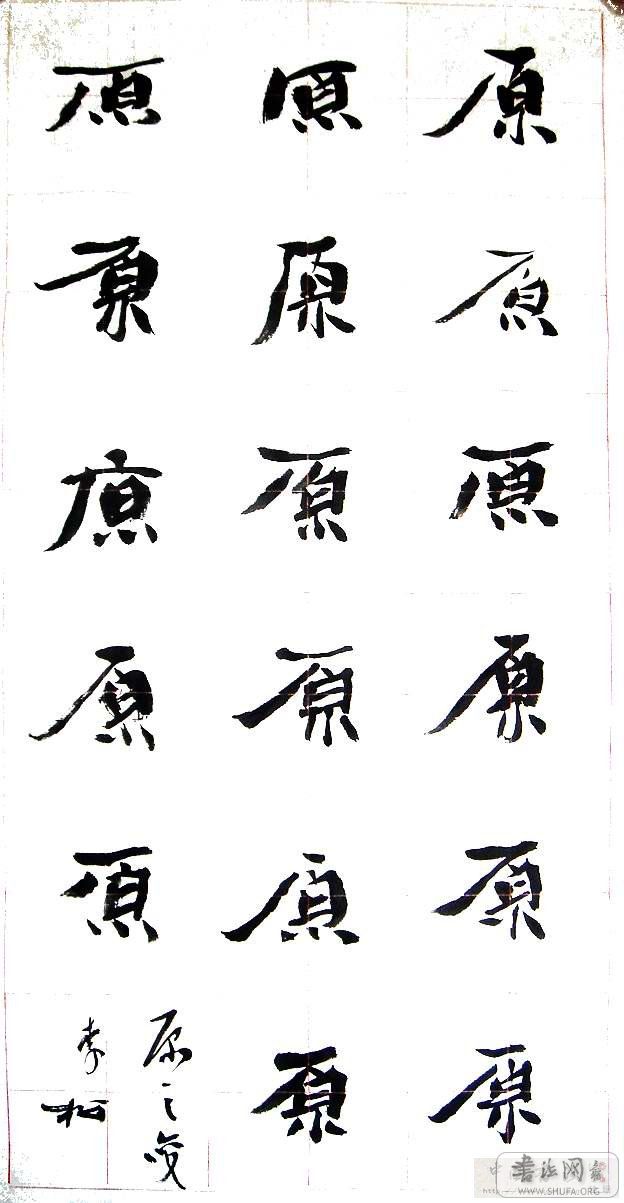 原原原原原原
原原原原原原
原原原原原
原之
李松
書法网
WWW.SHUFA.ORG